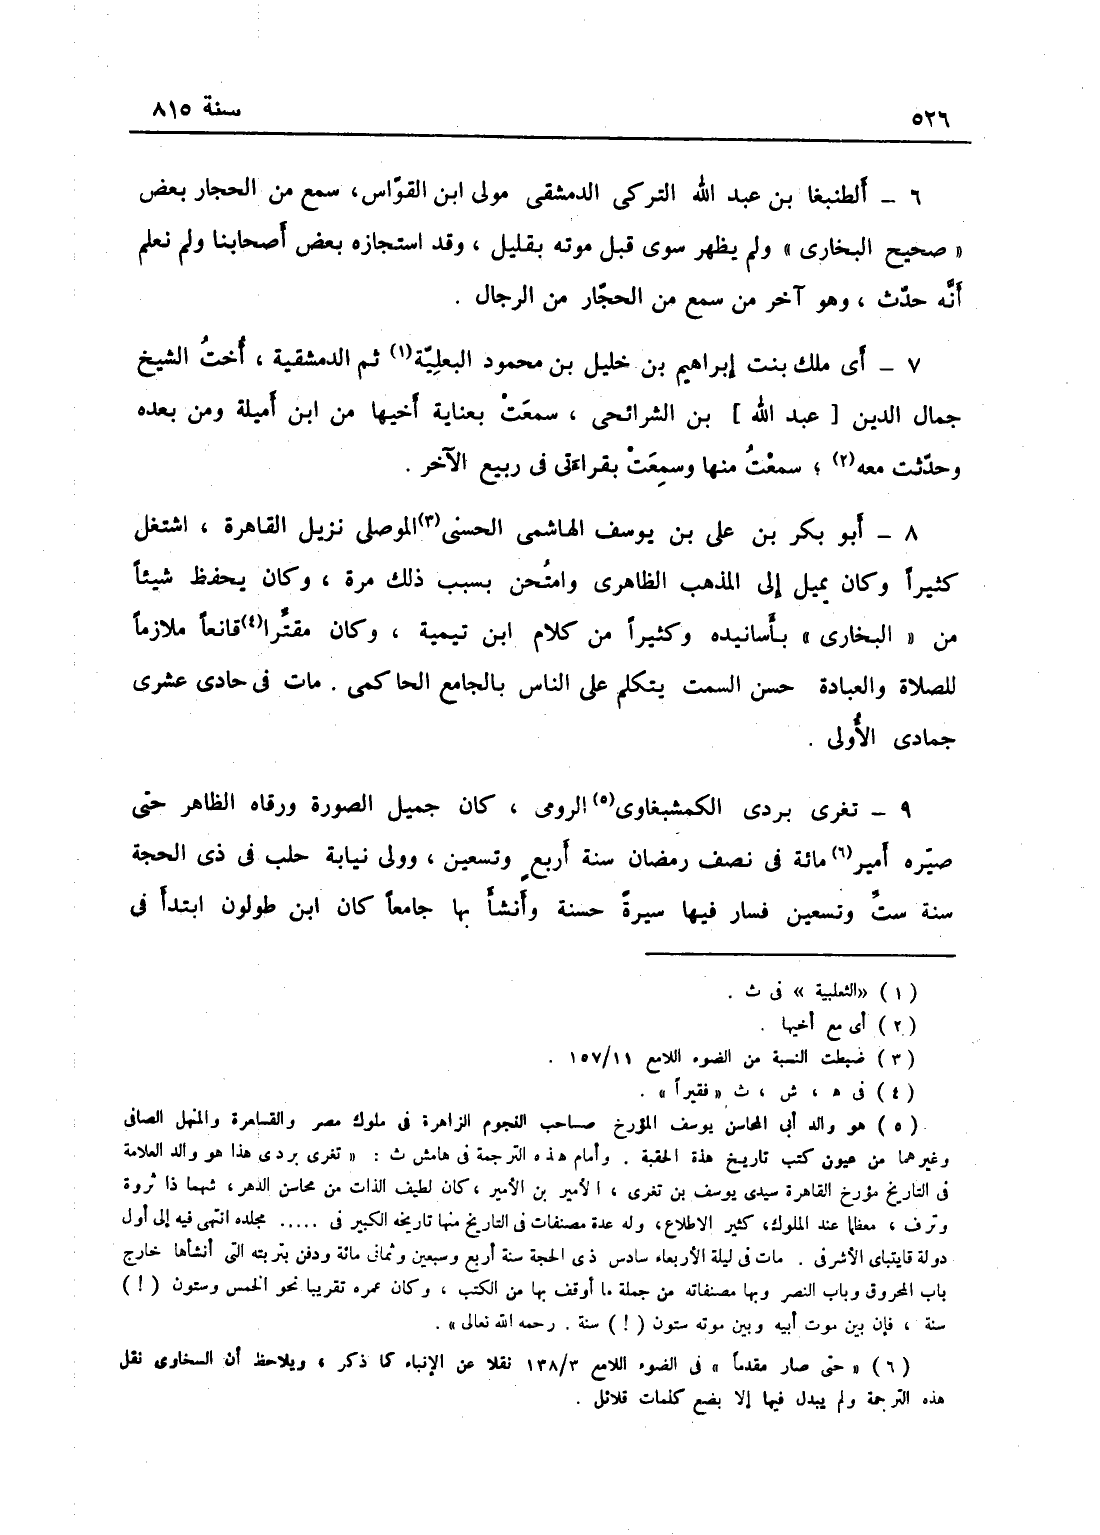 ٥٢٦
سنة ٨١٥
٦ ــ ألطنبغا بن عبد الله التركى الدمشقى مولى ابن القوّاس، سمع من الحجار بعض
« صحيح البخارى » ولم يظهر سوى قبل موته بقليل ، وقد استجازه بعض أصحابنا ولم نعلم
أنَّه حدّث ، وهو آخر من سمع من الحجّار من الرجال .
٧ ــ أى ملك بنت إبراهيم بن خليل بن محمود البعليّة(١) ثم الدمشقية ، أُختُ الشيخ
جمال الدين [ عبد الله ] بن الشرائحى ، سمعَتْ بعناية أخيها من ابن أميلة ومن بعده
وحدّثت معه(٢) ؛ سمعْتُ منها وسمعَتْ بقراءتى فى ربيع الآخر .
٨ ــ أبو بكر بن على بن يوسف الهاشمى الحسنى(٣)الموصلى نزيل القاهرة ، اشتغل
كثيراً وكان يميل إلى المذهب الظاهرى وامتُحن بسبب ذلك مرة ، وكان يحفظ شيئاً
من « البخارى » بأسانيده وكثيراً من كلام ابن تيمية ، وكان مقتِّرا(٤)قانعاً ملازماً
للصلاة والعبادة حسن السمت يتكلم على الناس بالجامع الحاكمى . مات فى حادى عشرى
جمادى الأُولى .
٩ ــ تغرى بردى الكمشبغاوى(٥)الرومى ، كان جميل الصورة ورقاه الظاهر حتى
صيّره أمير(٦)مائة فى نصف رمضان سنة أربعٍ وتسعين ، وولى نيابة حلب فى ذى الحجة
سنة ستٍّ وتسعين فسار فيها سيرةً حسنة وأنشأ بها جامعاً كان ابن طولون ابتدأ فى
( ١ ) « الثعلبية » فى ث .
( ٢ ) أى مع أخيها .
( ٣ ) ضبطت النسبة من الضوء اللامع ١٥٧/١١ .
( ٤ ) فى ه ، ش ، ث « فقيراً » .
( ٥ ) هو والد أبى المحاسن يوسف المؤرخ صاحب النجوم الزاهرة فى ملوك مصر والقساهرة والمنهل الصافى
وغيرهما من عيون كتب تاريخ هذة الحقبة . وأمام هذه الترجمة فى هامش ث : « تغرى بردى هذا هو والد العلامة
فى التاريخ مؤرخ القاهرة سيدى يوسف بن تغرى ، الأمير بن الأمير ، كان لطيف الذات من محاسن الدهر ، شهما ذا ثروة
وترف ، معظما عند الملوك، كثير الاطلاع، وله عدة مصنفات فى التاريخ منها تاريخه الكبير فى ..... مجلده انتهى فيه إلى أول
دولة قايتباى الأشرفى . مات فى ليلة الأربعاء سادس ذى الحجة سنة أربع وسبعين وثمانى مائة ودفن بتربته التى أنشأها خارج
باب المحروق وباب النصر وبها مصنفاته من جملة ما أوقف بها من الكتب ، وكان عمره تقريبا نحو الخمس وستون ( ! )
سنة ، فإن بين موت أبيه وبين موته ستون ( ! ) سنة . رحمه الله تعالى » .
( ٦ ) « حتى صار مقدماً » فى الضوء اللامع ١٣٨/٣ نقلا عن الإنباء كما ذكر ، ويلاحظ أن السخاوى نقل
هذه الترجمة ولم يبدل فيها إلا بضع كلمات قلائل .